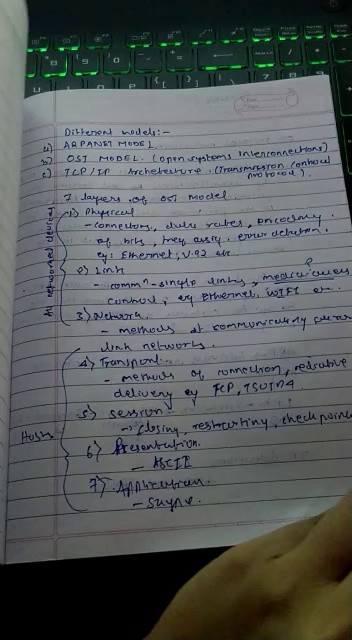 Different models:-
a) ARPANET MODEL.
b) OSI MODEL. (open systems interconnections)
c) TCP/IP Archetecture. (Transmission control protocol).
7 layers of OSI model
All networked devices
1) Physical
- connectors, data rates, encoding
of bits, freq assig. error detection.
eg: Ethernet, V.92 etc
2) Link
- commⁿ - single links,
control, eg Ethernet, WIFI etc.
3) Network.
- methods of communicating
link networks.
Hosts
4) Transport
- methods of connection,
delivery eg TCP,
5) Session
→ closing, restarting, checkpoint
6) Presentation.
- ASCII
7) Application.
- Skype.